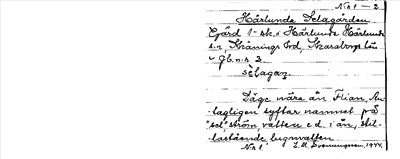 No 1 – 2
Härlunda Selagården
Gård 1 sk. i Härlunda Härlunda
s:n, Skånings hd, Skaraborgs län
Jb. nr 3.
sèlagaɳ
Läge nära ån Flian. An-
tagligen syftar namnet på
"sel" ström vatten e.d. i ån, stil-
lastående lugnvatten
No 1 1944.